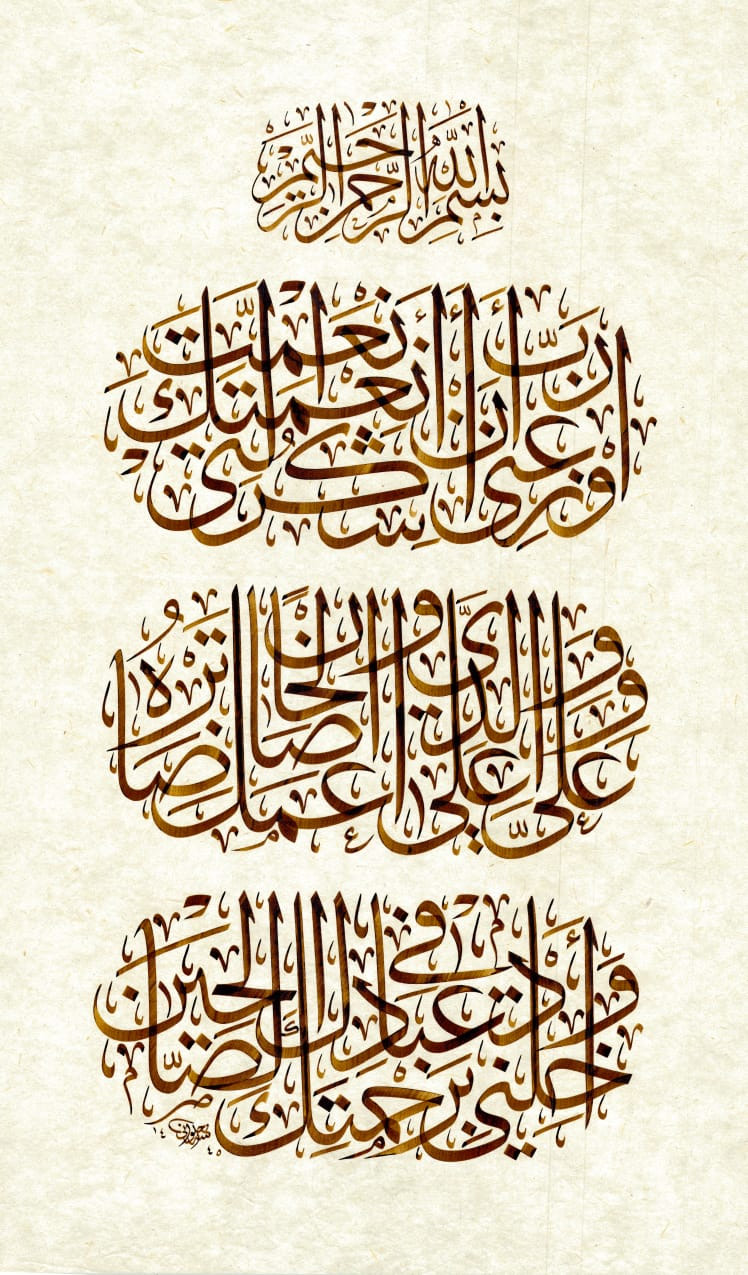 بِسْمِ اللهِ الرَّحْمٰنِ الرَّحِيمِ
رَبِّ أَوْزِعْنِي أَنْ أَشْكُرَ نِعْمَتَكَ الَّتِي أَنْعَمْتَ
عَلَيَّ وَعَلَى وَالِدَيَّ وَأَنْ أَعْمَلَ صَالِحًا تَرْضَاهُ
وَأَدْخِلْنِي بِرَحْمَتِكَ فِي عِبَادِكَ الصَّالِحِينَ
١٤ ٤٥